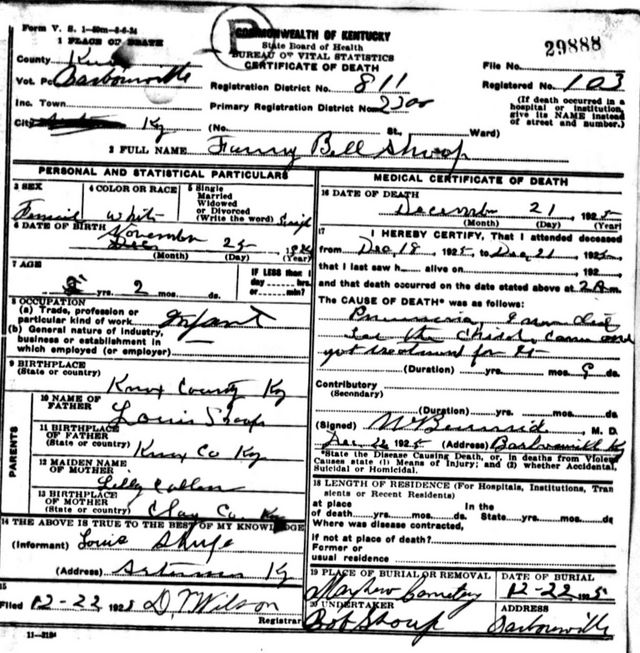 Form V. S. 1-50m-8-6-24
COMMONWEALTH OF KENTUCKY
State Board of Health
BUREAU OF VITAL STATISTICS
CERTIFICATE OF DEATH
29888
File No.
1 PLACE OF DEATH
County Knox
Vot. Pc Barbourville
Inc. Town
City Ky
Registration District No. 811
Primary Registration District No. 2300
Registered No. 103
(If death occurred in a
hospital or institution,
give its NAME instead
of street and number.)
(No. St., Ward)
2 FULL NAME Fanny Bell Shoop
PERSONAL AND STATISTICAL PARTICULARS
3 SEX Female
4 COLOR OR RACE White
5 Single
Married
Widowed
or Divorced
(Write the word) Single
6 DATE OF BIRTH November
Dec 25
(Month) (Day) (Year)
7 AGE
IF LESS than 1
day hrs.
or min.
yrs. 2 mos. ds.
8 OCCUPATION
(a) Trade, profession or
particular kind of work Infant
(b) General nature of industry,
business or establishment in
which employed (or employer)
9 BIRTHPLACE
(State or country) Knox County Ky
PARENTS
10 NAME OF
FATHER Louis Shoop
11 BIRTHPLACE
OF FATHER
(State or country) Knox Co Ky
12 MAIDEN NAME
OF MOTHER Lilly
13 BIRTHPLACE
OF MOTHER
(State or country) Clay Co Ky
14 THE ABOVE IS TRUE TO THE BEST OF MY KNOWLEDGE
(Informant) Louis
(Address) Artemus Ky
15
Filed 12-22 1925 D. Wilson
Registrar
11-3184
MEDICAL CERTIFICATE OF DEATH
16 DATE OF DEATH
December 21, 1925
(Month) (Day) (Year)
17 I HEREBY CERTIFY, That I attended deceased
from Dec, 18 1925 to Dec, 21 1925
that I last saw h alive on 192
and that death occurred on the date stated above at 2 m.
The CAUSE OF DEATH* was as follows:
Pneumonia
the child came and
got treatment for it
(Duration) yrs. mos. 9 ds.
Contributory
(Secondary)
(Duration) yrs. mos. ds.
(Signed) M. D.
Dec 22 1925 (Address) Barbourville Ky
*State the Disease Causing Death, or, in deaths from Violent
Causes state (1) Means of Injury; and (2) whether Accidental,
Suicidal or Homicidal.
18 LENGTH OF RESIDENCE (For Hospitals, Institutions, Tran
sients or Recent Residents)
at place In the
of death yrs. mos. ds. State yrs. mos. ds
Where was disease contracted,
if not at place of death?
Former or
usual residence
19 PLACE OF BURIAL OR REMOVAL
Mayhew Cemetery
DATE OF BURIAL
12-22 1925
20 UNDERTAKER
Bob Shoup
ADDRESS
Barbourville